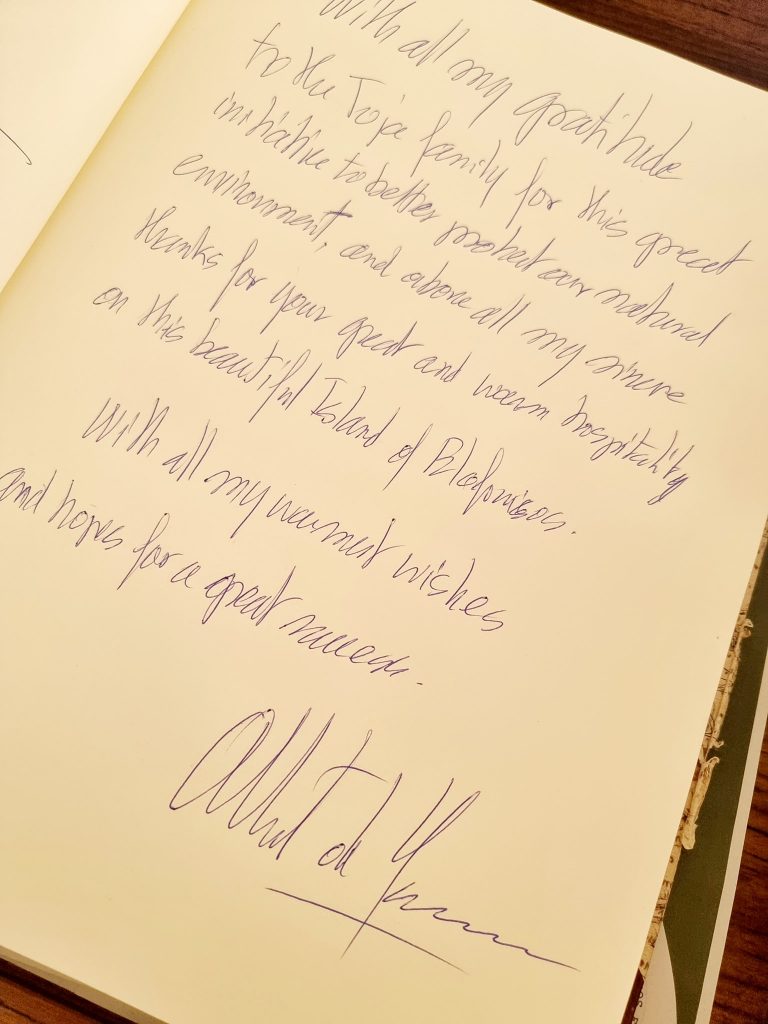 With all my gratitude
to the Toja family for this great
initiative to better protect our natural
environment, and above all my sincere
thanks for your great and warm hospitality
on this beautiful Island of Elafonisos.
With all my warmest wishes
and hopes for a great success.
Albert de